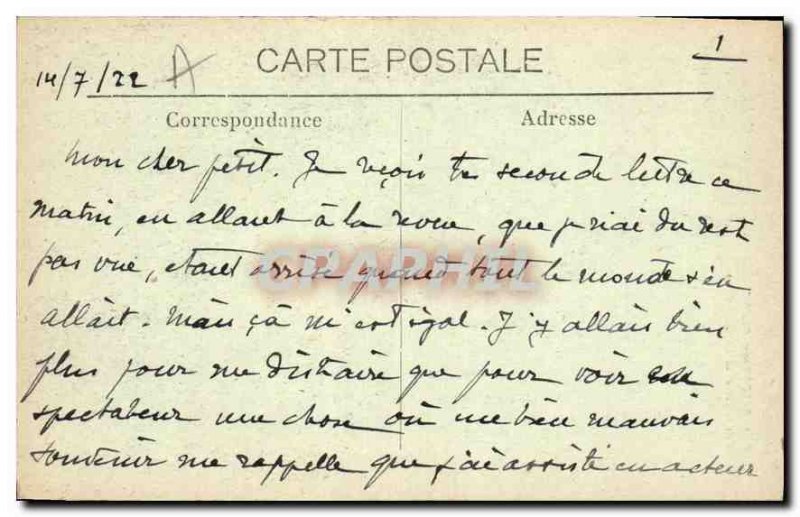 1
14/7/22 A CARTE POSTALE
Correspondance Adresse
Mon cher petit. Je reçois ta seconde lettre ce
matin, en allant à la revue, que je n'ai du reste
pas vue, étant arrivé quand tout le monde s'en
allait. Mais ça m'est égal. J'y allais bien
plus pour me distraire que pour voir en
spectateur une chose où un bien mauvais
souvenir me rappelle que j'ai assisté en acteur
CPAPHIL